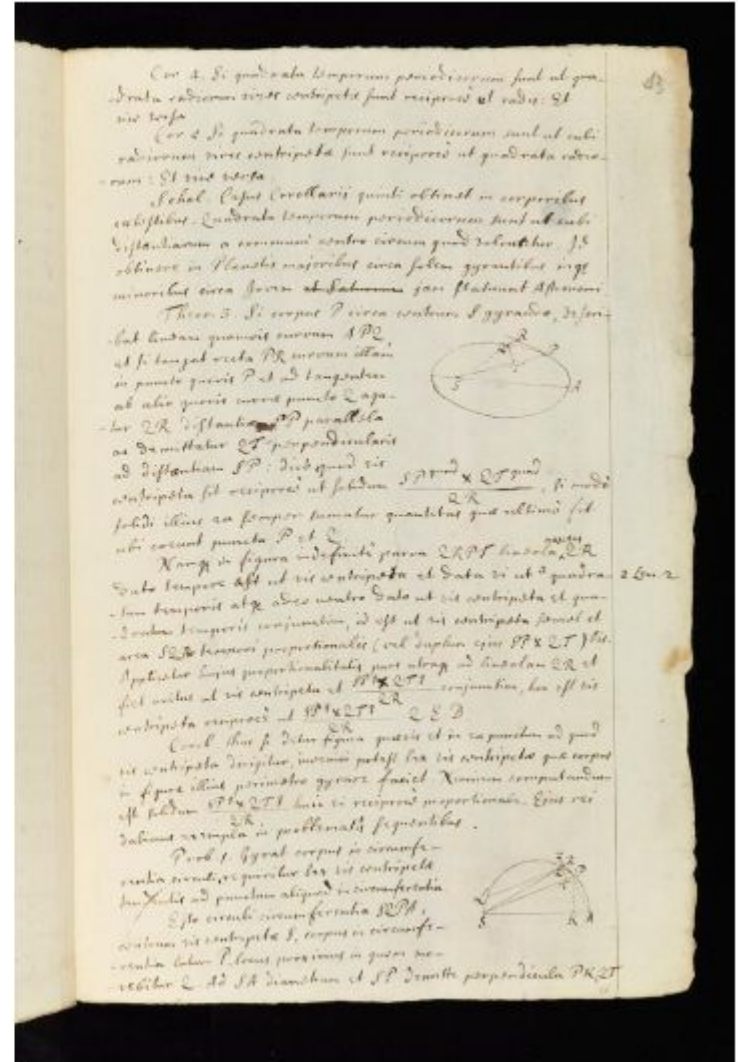 43
Cor 4. Si quadrata temporum periodicorum sunt ut qua-
-drata radiorum vires centripetæ sunt reciprocè ut radii: Et
vice versa
Cor 5 Si quadrata temporum periodicorum sunt ut cubi
radiorum vires centripetæ sunt reciprocè ut quadrata radio-
-rum: Et vice versa
Schol. Casus Corollarii quinti obtinet in corporibus
cælestibus. Quadrata temporum periodicorum sunt ut cubi
distantiarum a communi centro circum quod volvuntur. Id
obtinere in Planetis majoribus circa Solem gyrantibus inqꝫ
minoribus circa Jovem et Saturnum jam statuunt Astronomi
Theor. 3. Si corpus P circa centrum S gyrando, descri-
-bat lineam quamvis curvam APQ,
et si tangat recta PR curvam illam
in puncto quovis P et ad tangentem
ab alio quovis curvæ puncto Q aga-
-tur QR distantiæ SP parallela
ac demittatur QT perpendicularis
ad distantiam SP: dico quod vis
centripeta sit reciprocè ut solidum SP quad × QT quad / QR, si modò
solidi illius ea semper sumatur quantitas quæ ultimò fit
ubi coeunt puncta P et Q.
Namqꝫ in figura indefinitè parva QRPT lineola QR
dato tempore est ut vis centripeta et data vi ut quadra- 2 Lem. 2
-tum temporis atqꝫ adeo neutro dato ut vis centripeta et qua-
-dratum temporis conjunctim, id est ut vis centripeta semel et
area SQP tempori proportionalis (vel duplum ejus SP × QT) bis.
Applicetur hujus proportionalitatis pars utraqꝫ ad lineolam QR et
fiet unitas ut vis centripeta et SPq × QTq / QR conjunctim, hoc est vis
centripeta reciprocè ut SPq × QTq / QR Q E D
Corol. Hinc si detur figura quævis et in ea punctum ad quod
vis centripeta dirigitur, inveniri potest lex vis centripetæ quæ corpus
in figuræ illius perimetro gyrare faciet. Nimirum computandum
est solidum SPq × QTq / QR huic vi reciprocè proportionale. Ejus rei
dabimus exempla in problematis sequentibus.
Prob 1. Gyrat corpus in circumfe-
-rentia circuli, requiritur lex vis centripetæ
tendentis ad punctum aliquod in circumferentia
Esto circuli circumferentia SQPA,
centrum vis centripetæ S, corpus in circumfe-
-rentia latum P, locus proximus in quem mo-
-vebitur Q. Ad SA diametrum et SP demitte perpendicula PK, QT